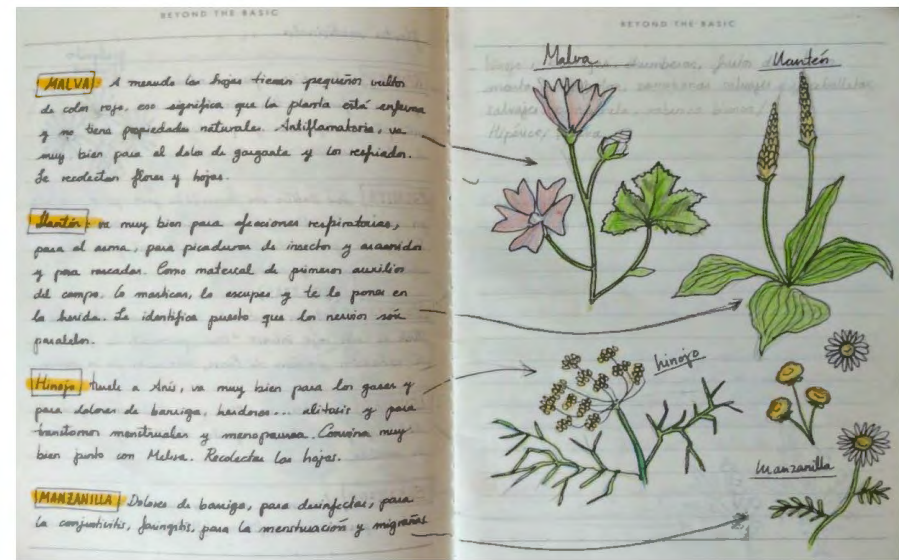 BEYOND THE BASIC
MALVA A menudo las hojas tienen pequeños bultos
de color rojo, eso significa que la planta está enferma
y no tiene propiedades naturales. Antiflamatoria, va
muy bien para el dolor de garganta y los resfriados.
Se recolectan flores y hojas.
Llantén va muy bien para afecciones respiratorias,
para el asma, para picaduras de insectos y aracnidos
y para rascadas. Como material de primeros auxilios
del campo. Lo masticas, lo escupes y te lo pones en
la herida. Se identifica puesto que los nervios son
paralelos.
Hinojo, huele a Anís, va muy bien para los gases y
para dolores de barriga, heridas... alitosis y para
transtornos menstruales y menopausea. Convina muy
bien junto con Melisa. Recolectar las hojas.
MANZANILLA Dolores de barriga, para desinfectar, para
la conjuntivitis, faringitis, para la menstruación y migrañas
BEYOND THE BASIC
Malva
Llantén
hinojo
Manzanilla